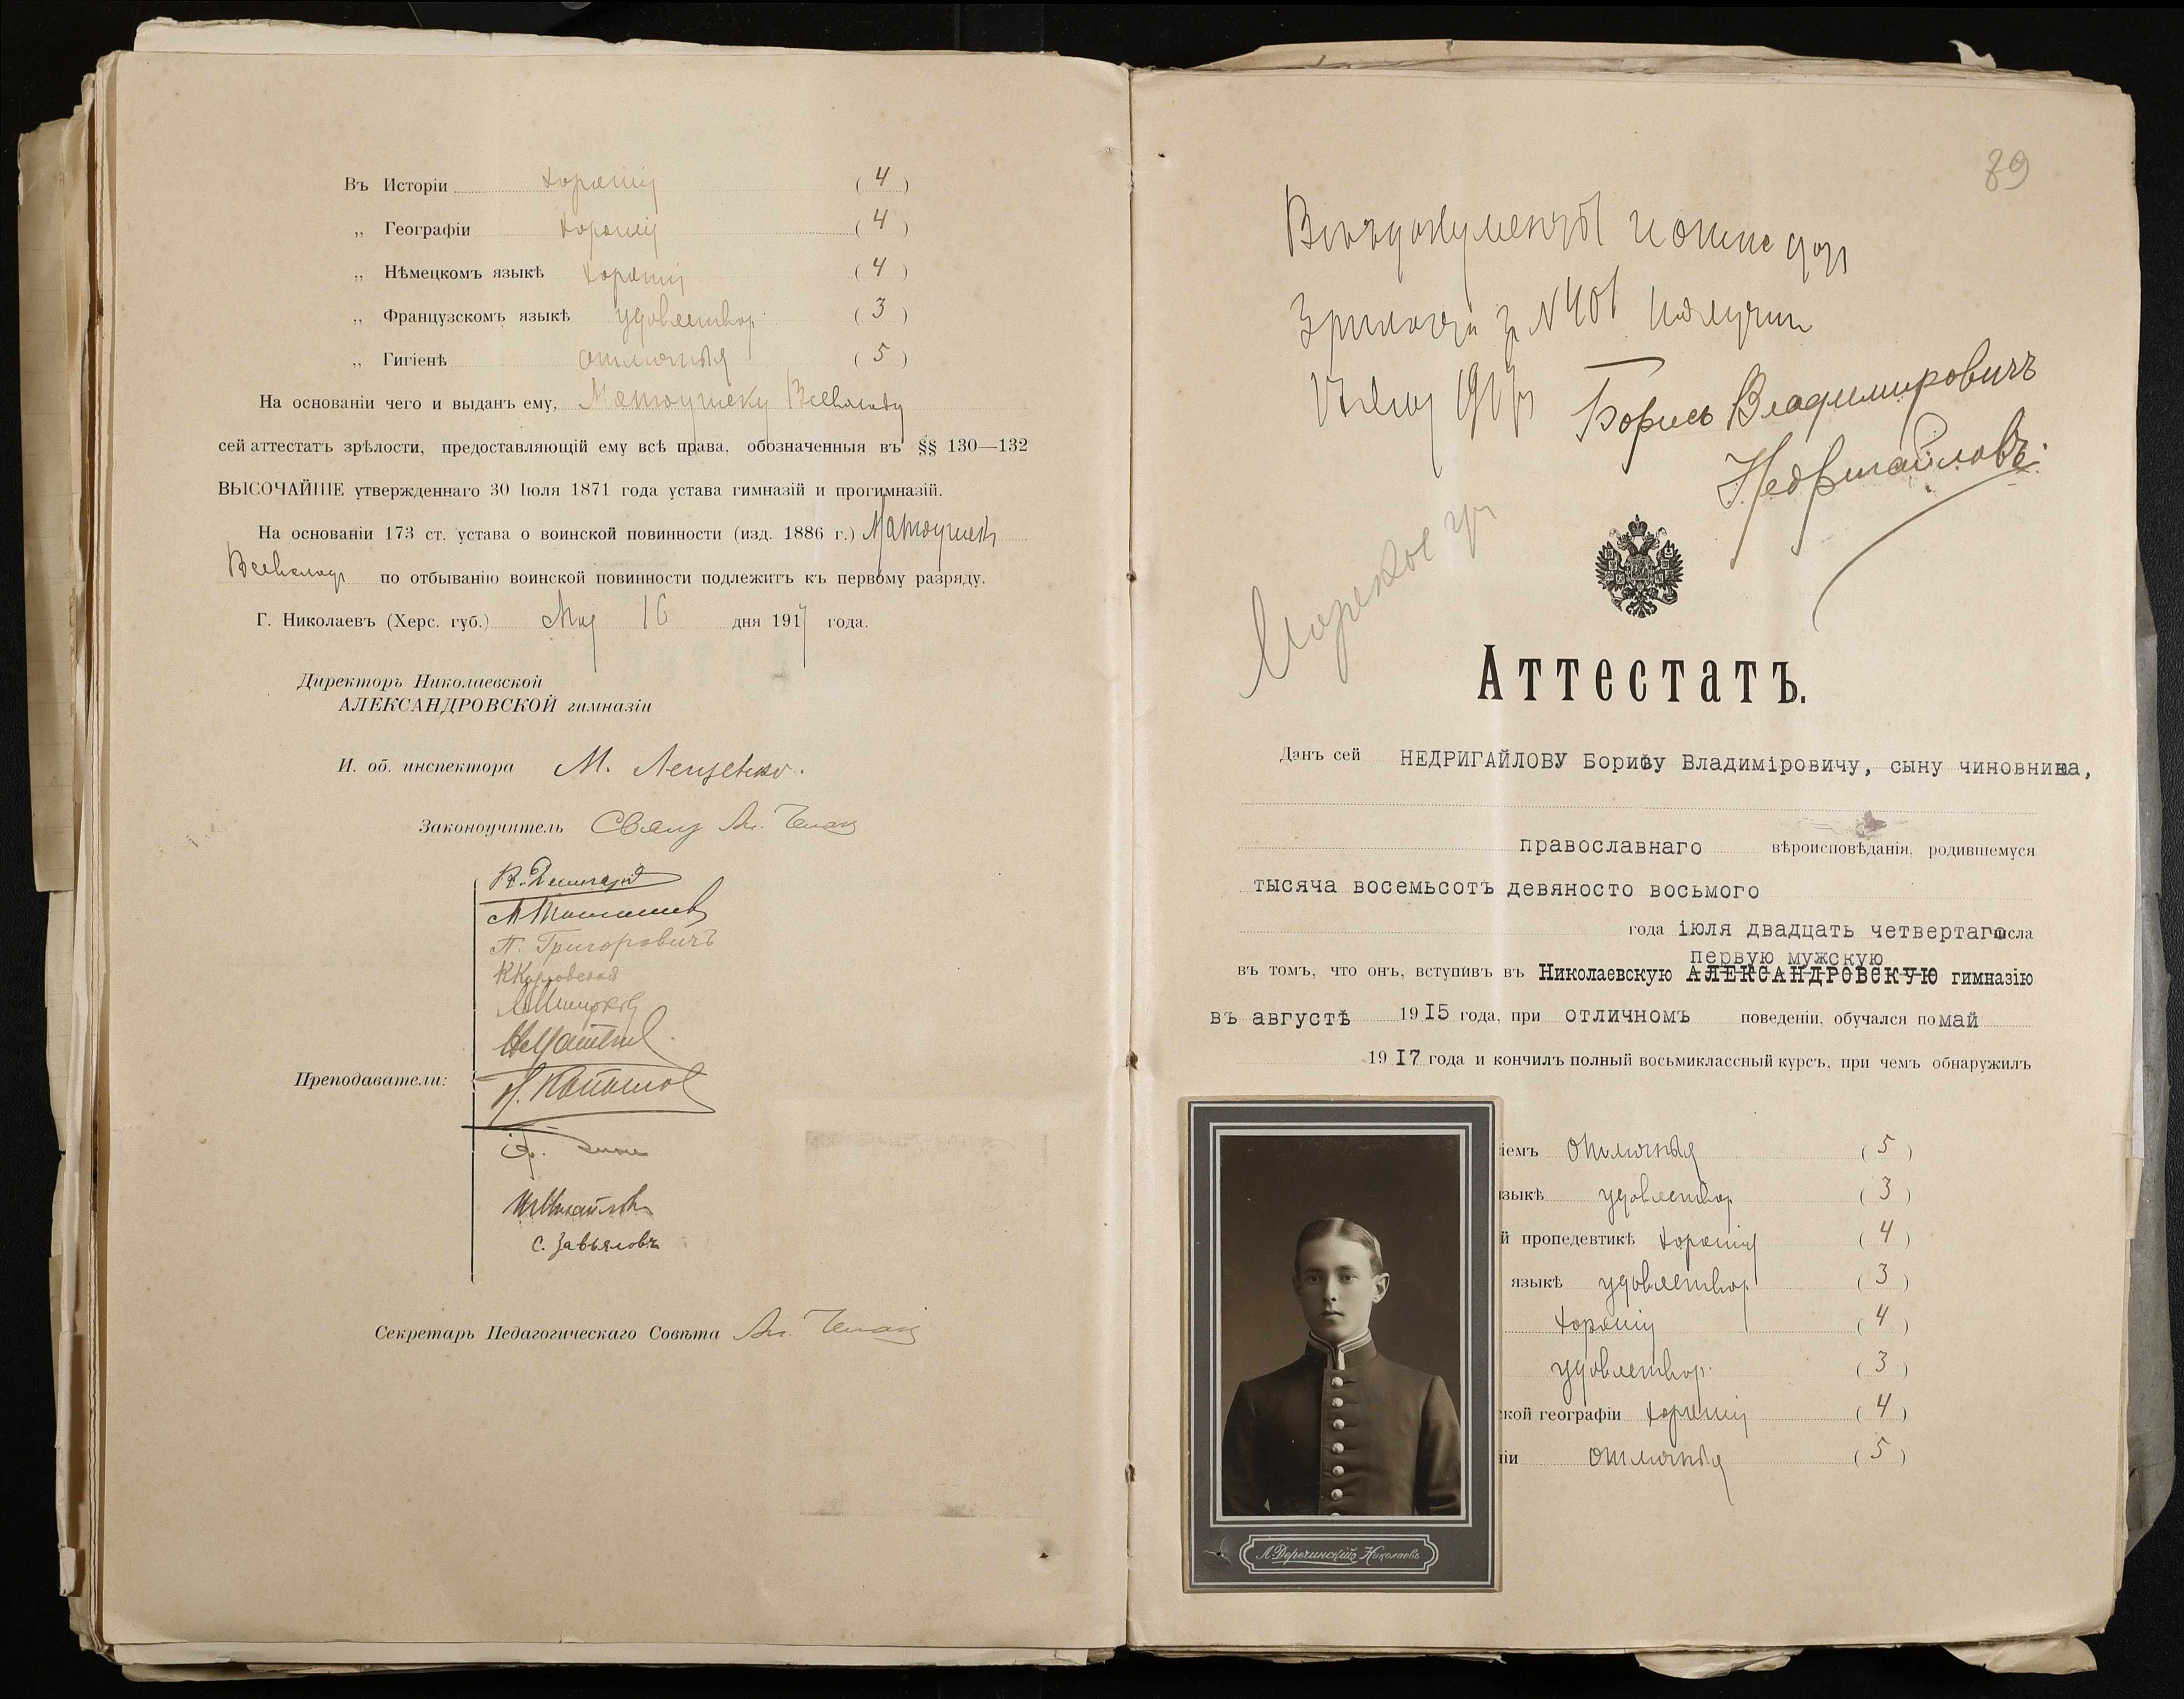 Въ Исторіи хорошiя ( 4 )
„ Географіи хорошiя ( 4 )
„ Нѣмецкомъ языкѣ хорошiя ( 4 )
„ Французскомъ языкѣ удовлетвор ( 3 )
„ Гигіенѣ отличныя ( 5 )
На основаніи чего и выданъ ему, Матоушеку Всеволоду
сей аттестатъ зрѣлости, предоставляющій ему всѣ права, обозначенныя въ §§ 130—132
ВЫСОЧАЙШЕ утвержденнаго 30 Іюля 1871 года устава гимназій и прогимназій.
На основаніи 173 ст. устава о воинской повинности (изд. 1886 г.) Матоушекъ
Всеволодъ по отбыванію воинской повинности подлежитъ къ первому разряду.
Г. Николаевъ (Херс. губ.) Мая 16 дня 1917 года.
Директоръ Николаевской
АЛЕКСАНДРОВСКОЙ гимназіи
И. об. инспектора М. Лещенко.
Законоучитель Свящ Ал.
П. Григоровичъ
Преподаватели:
С. Завьяловъ
Секретарь Педагогическаго Совѣта Ал.
89
Всѣ документы и аттестат
Зрѣлости за №401 получил
1917
Борисъ Владимировичъ
Недригайловъ.
Морское
Аттестатъ.
Данъ сей НЕДРИГАЙЛОВУ Борису Владиміровичу, сыну чиновника,
православнаго вѣроисповѣданія, родившемуся
тысяча восемьсотъ девяносто восьмого
года іюля двадцать четвертаго числа
первую мужскую
въ томъ, что онъ, вступивъ въ Николаевскую АЛЕКСАНДРОВСКУЮ гимназію
въ августѣ 1915 года, при отличномъ поведеніи, обучался по май
1917 года и кончилъ полный восьмиклассный курсъ, при чемъ обнаружилъ
іемъ отличныя ( 5 )
зыкѣ удовлетвор ( 3 )
й пропедевтикѣ хорошiя ( 4 )
языкѣ удовлетвор ( 3 )
хорошiя ( 4 )
удовлетвор. ( 3 )
кой географіи хорошiя ( 4 )
іи отличныя ( 5 )
Л. Деречинскій Николаевъ